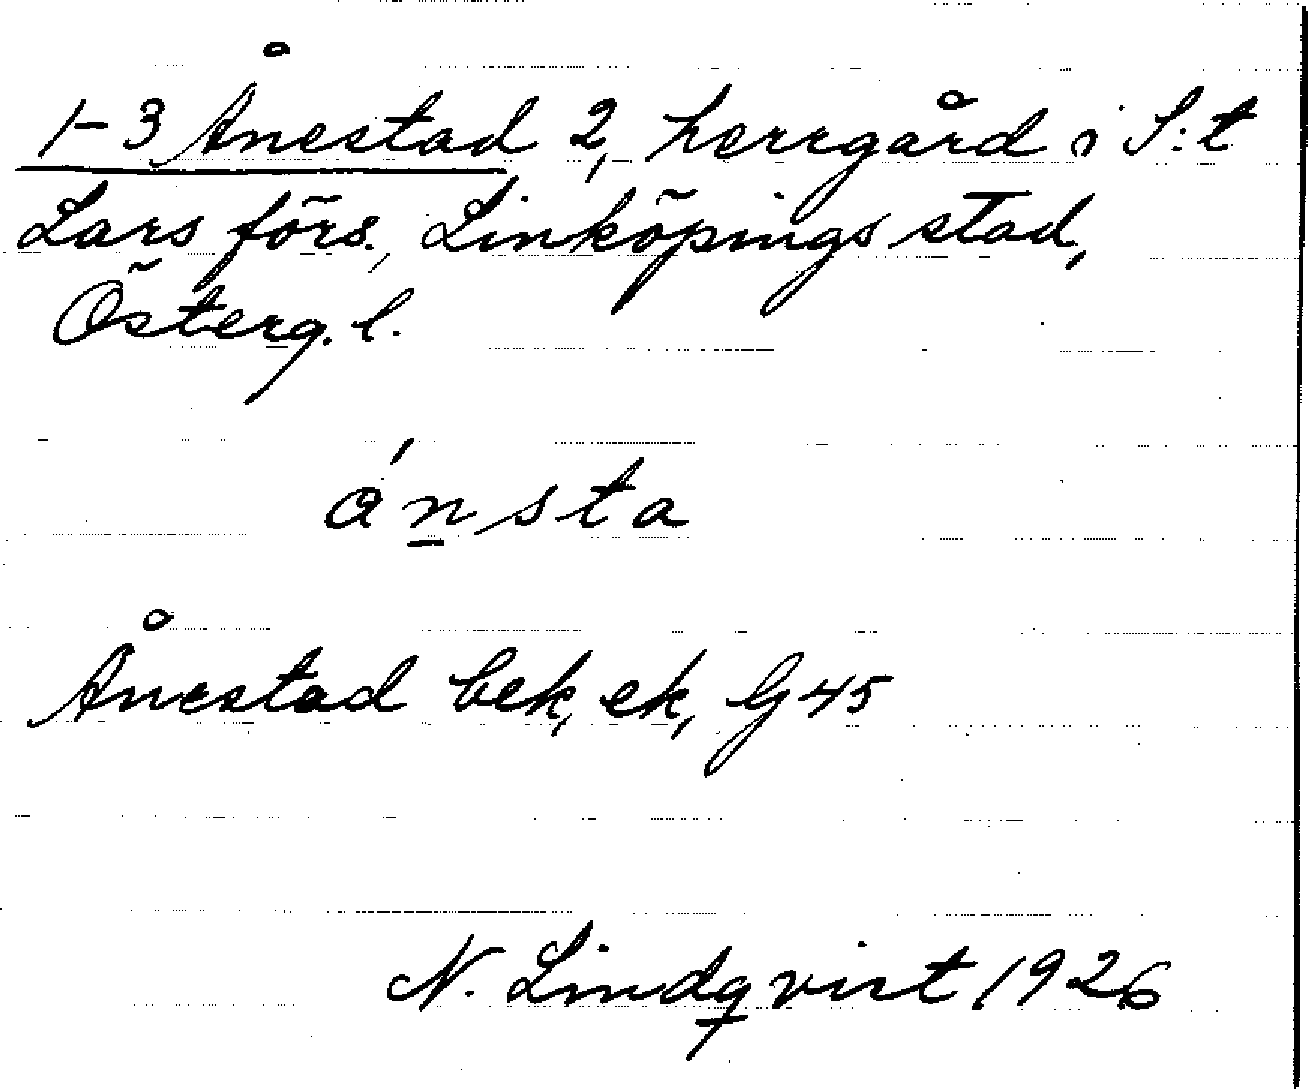 1-3 Ånestad 2, herrgård i S:t
Lars förs., Linköpings stad,
Österg. l.
ánsta
Ånestad bek, ek, G 45
N. Lindqvist 1926